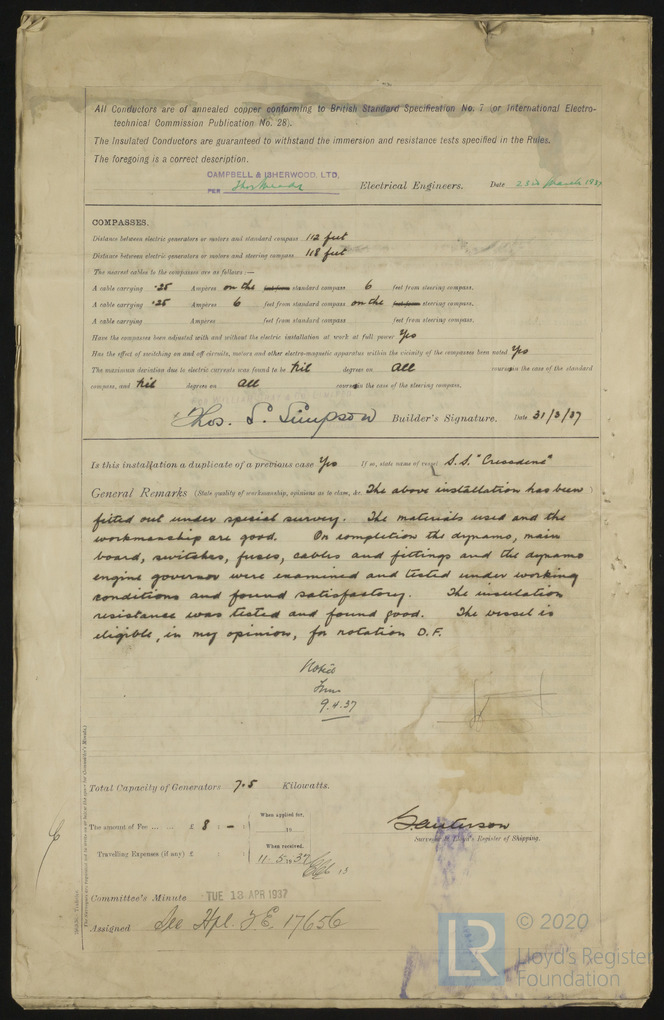 All Conductors are of annealed copper conforming to British Standard Specification No. 7 (or International Electro-
technical Commission Publication No. 28).
The Insulated Conductors are guaranteed to withstand the immersion and resistance tests specified in the Rules.
The foregoing is a correct description.
CAMPBELL & ISHERWOOD, LTD,
PER Electrical Engineers. Date March 1937
COMPASSES.
Distance between electric generators or motors and standard compass 112 feet
Distance between electric generators or motors and steering compass 118 feet
The nearest cables to the compasses are as follows:—
A cable carrying .25 Amperes on the standard compass 6 feet from steering compass.
A cable carrying .25 Amperes 6 feet from standard compass on the steering compass.
A cable carrying Amperes feet from standard compass feet from steering compass.
Have the compasses been adjusted with and without the electric installation at work at full power Yes
Has the effect of switching on and off circuits, motors and other electro-magnetic apparatus within the vicinity of the compasses been noted Yes
The maximum deviation due to electric currents was found to be Nil degrees on All courses in the case of the standard
compass, and Nil degrees on All courses in the case of the steering compass.
Thos. S. Simpson Builder's Signature. Date 31/3/37
Is this installation a duplicate of a previous case Yes If so, state name of vessel S.S. "
General Remarks (State quality of workmanship, opinions as to class, &c. The above installation has been )
fitted out under special survey. The materials used and the
workmanship are good. On completion the dynamo, main
board, switches, fuses, cables and fittings and the dynamo
engine governor were examined and tested under working
conditions and found satisfactory. The insulation
resistance was tested and found good. The vessel is
eligible, in my opinion, for notation D.F.
Noted
9.4.37
Total Capacity of Generators 7.5 Kilowatts.
The amount of Fee ... ... £ 8 : - : When applied for,
19
Surveyor to Lloyd's Register of Shipping.
Travelling Expenses (if any) £ : : When received,
11.5.1937
Committee's Minute TUE 13 APR 1937
Assigned See Hpl. F.E. 17656
LR
© 2020
Lloyd's Register
Foundation